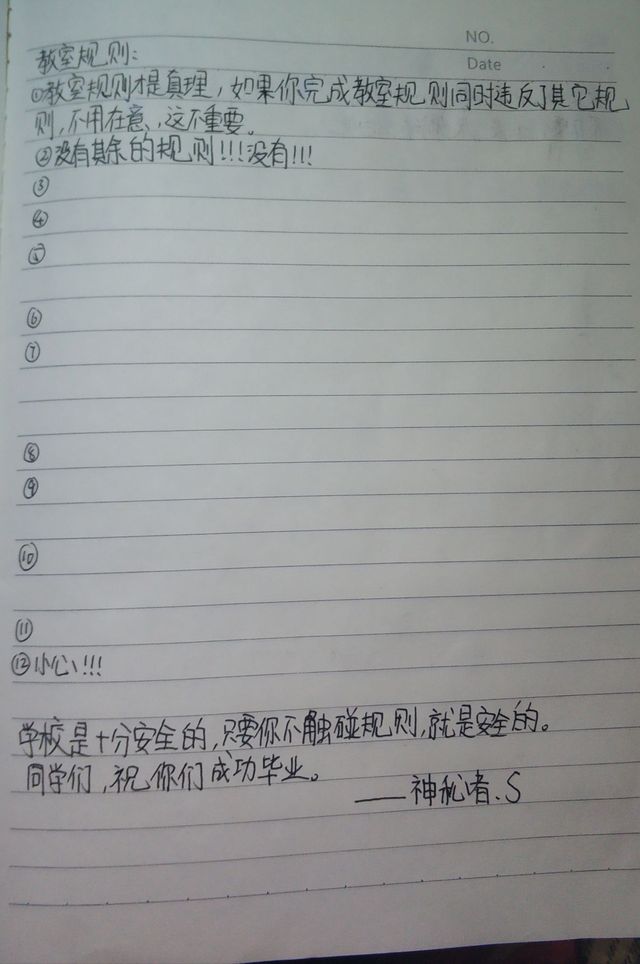 NO.
Date
教室规则:
①教室规则才是真理，如果你完成教室规则同时违反了其它规
则，不用在意，这不重要。
②没有其余的规则!!!没有!!!
③
④
⑤
⑥
⑦
⑧
⑨
⑩
⑪
⑫小心!!!
学校是十分安全的,只要你不触碰规则,就是安全的。
同学们,祝你们成功毕业。
——神秘者.S